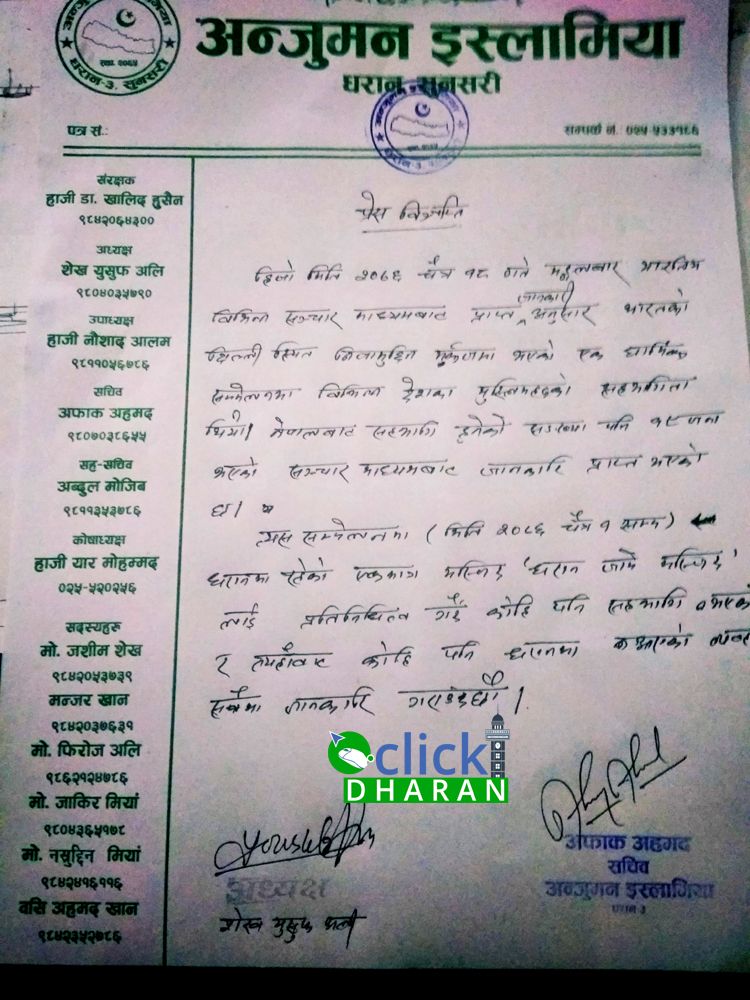 अन्जुमन इस्लामिया
धरान, सुनसरी
धरान-३, सुनसरी
पत्र सं.:
सम्पर्क नं.: ०२५-५३३१८६
संरक्षक
हाजी डा. खालिद हुसैन
९८४२०६४३००
अध्यक्ष
शेख युसुफ अलि
९८०४०३५७९०
उपाध्यक्ष
हाजी नौशाद आलम
९८११०५६७८६
सचिव
अफाक अहमद
९८०७०३८६५५
सह-सचिव
अब्दुल मोजिब
९८११३५३७८६
कोषाध्यक्ष
हाजी यार मोहम्मद
०२५-५२०२५६
सदस्यहरु
मो. जशीम शेख
९८४२०५३७३९
मन्जर खान
९८४२०३७६३१
मो. फिरोज अलि
९८६२१२४७८६
मो. जाकिर मियां
९८०४३६५१७८
मो. नसुद्दिन मियां
९८४२४१६११६
वसि अहमद खान
९८४२३५२७८६
प्रेस विज्ञप्ति
हिजो मिति २०७६ चैत्र १८ गते मङ्गलबार भारतिय
विभिन्न सञ्चार माध्यमबाट प्राप्त जानकारी अनुसार भारतको
दिल्ली स्थित निजामुद्दिन मर्कजमा भएको एक धार्मिक
सम्मेलनमा विभिन्न देशका मुस्लिमहरुको सहभागिता
थियो। नेपालबाट सहभागि हुनेको सङ्ख्या पनि १९ जना
भएको सञ्चार माध्यमबाट जानकारि प्राप्त भएको
छ।
त्यस सम्मेलनमा (मिति २०७६ चैत्र १ सम्म)
धरानमा रहेको एकमात्र मस्जिद 'धरान जामे मस्जिद'
लाई प्रतिनिधित्व गर्दै कोहि पनि सहभागि नभएको
र त्यहाँबाट कोहि पनि धरानमा नआएको व्यहोरा
सबैमा जानकारि गराउँदछौं।
click
DHARAN
अध्यक्ष
शेख युसुफ अली
अफाक अहमद
सचिव
अन्जुमन इस्लामिया
धरान-३